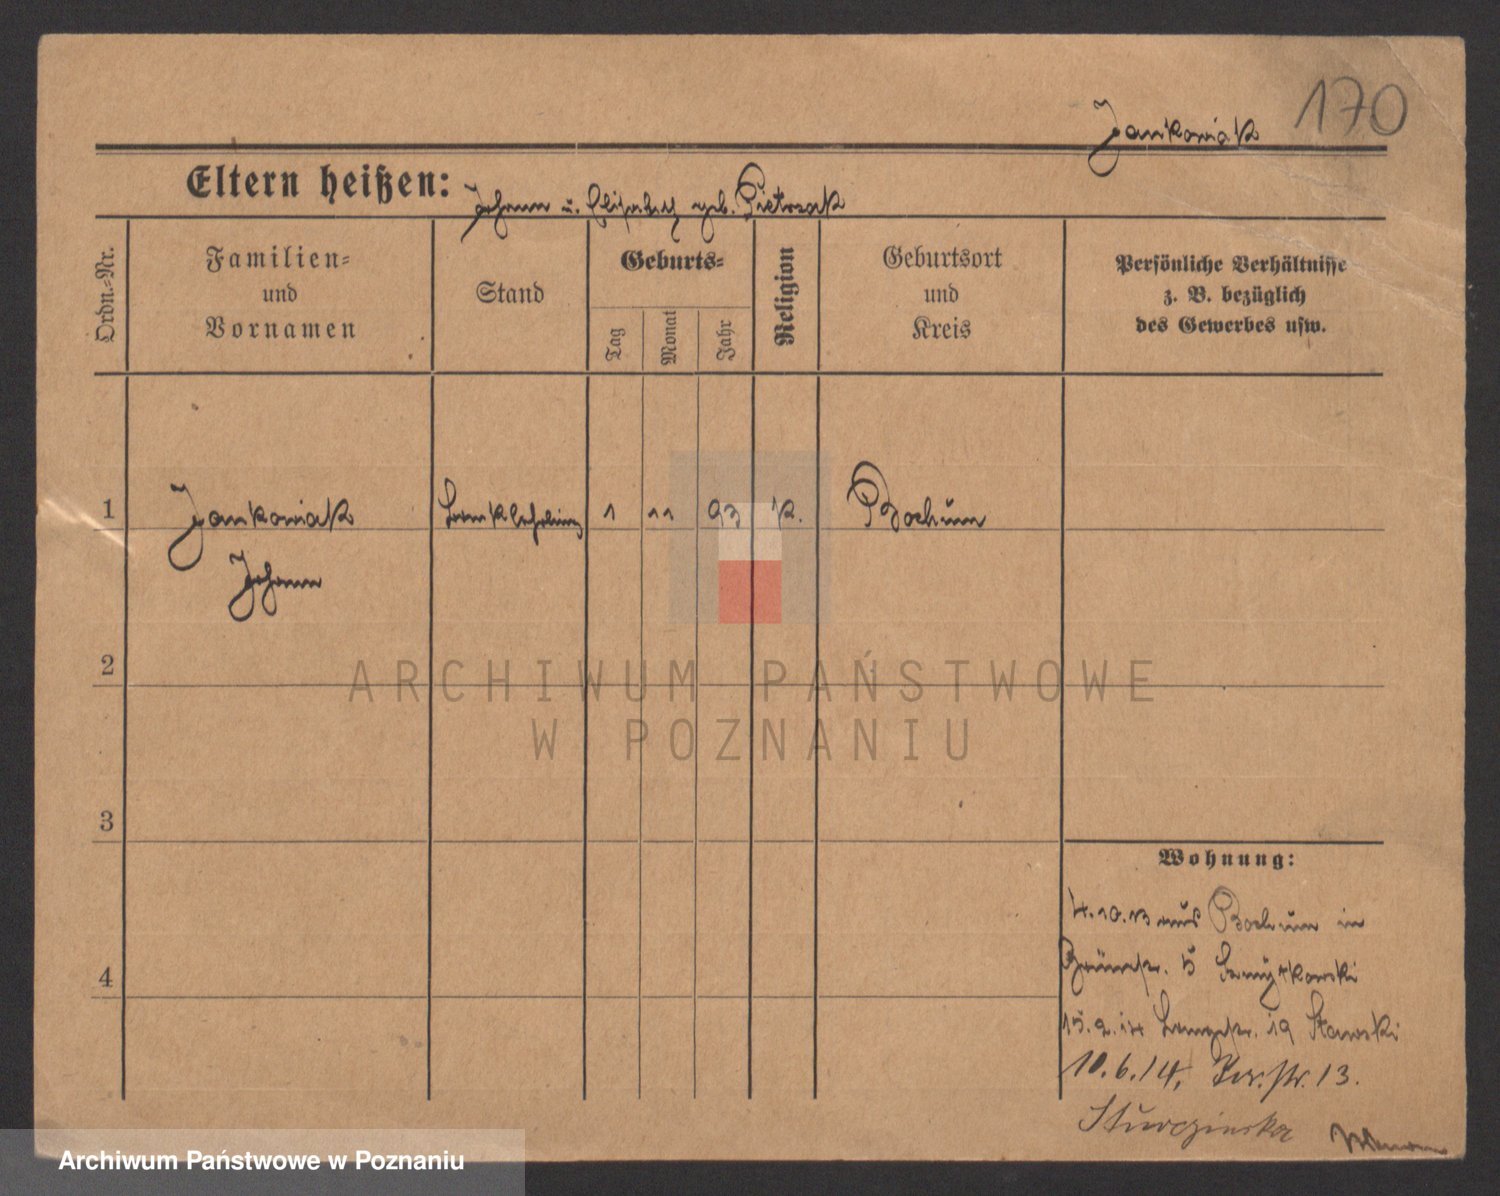 170
Jankowiak
Eltern heißen: Johann u. Elisabeth geb. Pietrzak
Ordn.-Nr.
Familien-
und
Vornamen
Stand
Geburts-
Tag
Monat
Jahr
Religion
Geburtsort
und
Kreis
Persönliche Verhältnisse
z. B. bezüglich
des Gewerbes usw.
1 Jankowiak Banklehrling 1 11 93 K. Bochum
Johann
2
ARCHIWUM PAŃSTWOWE
W POZNANIU
3
Wohnung:
4.10.13 aus Bochum in
5
4
15.2.14 Langestr. 19 Stawski
10.6.14, 13.
Archiwum Państwowe w Poznaniu